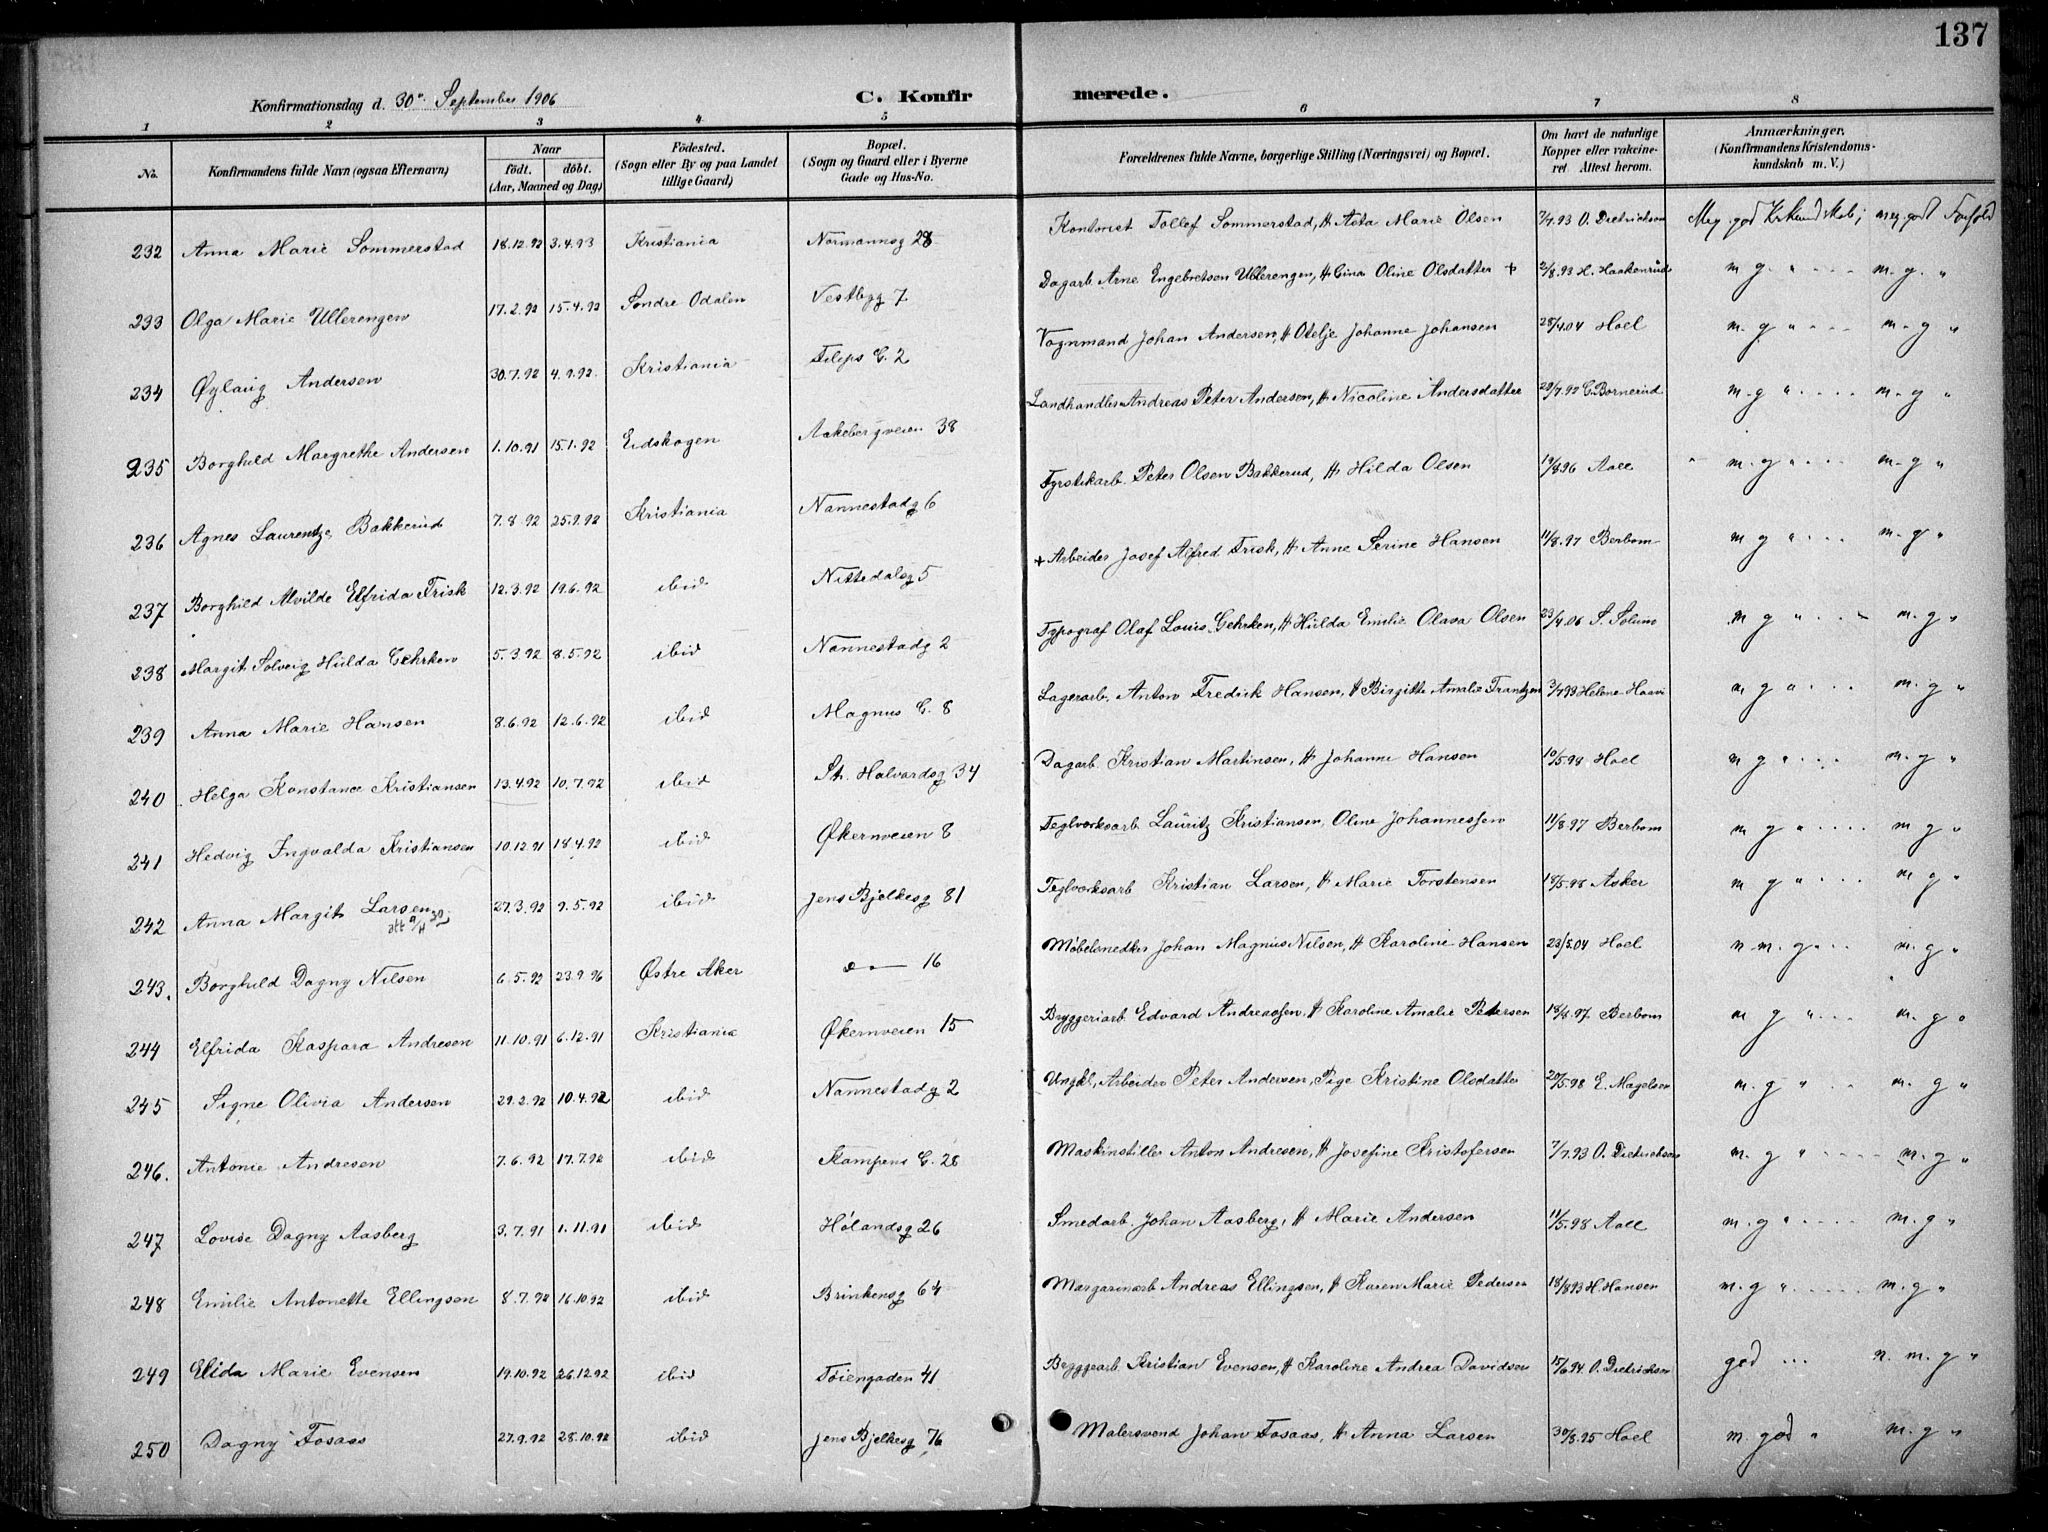 137
Konfirmationsdag d. 30te September 1906 C. Konfirmerede.
1 2 3 4 5 6 7 8
No. Konfirmandens fulde Navn (ogsaa Efternavn) Naar født. døbt. (Aar, Maaned og Dag) Fødested. (Sogn eller By og paa Landet tillige Gaard) Bopæl. (Sogn og Gaard eller i Byerne Gade og Hus-No. Forældrenes fulde Navne, borgerlige Stilling (Næringsvei) og Bopæl. Om havt de naturlige Kopper eller vakcineret Attest herom. Anmærkninger. (Konfirmandens Kristendomskundskab m. V.)
232 Anna Marie Sommerstad 18.12.92 3.4.93 Kristiania Normannsg 28 Kontorist Tollef Sommerstad, H Asta Marie Olsen 7/7.93 O. Dietrichson Meg. god Krkundskab; meg. god Forhold
233 Olga Marie Ullerengen 17.2.92 15.4.92 Søndre Odalen Vestbyg 7 Dagarb Arne Engebretsen Ullerengen, H Gina Oline Olsdatter + 2/8.93 H. Haakenrud m g. " m. g. "
234 Øylaug Andersen 30.7.92 4.9.92. Kristiania Tileps G. 2 Vognmand Johan Andersen, H Otelje Johanne Johansen 28/4.04 Hoel m. g " m. g "
235 Borghild Margrethe Andersen 1.10.91 15.1.92 Eidskogen Aakebergveien 38 Landhandler Andreas Peter Andersen, H Nicoline Andersdatter 29/7.92 C. Bornerud m. g " m. g "
236 Agnes Laurentze Bakkerud 7.8.92 25.9.92 Kristiania Nannestadg 6 Fyrstikarb. Peter Olsen Bakkerud, H Hilda Olsen 19/8.96 Aall m. g " m. g "
237 Borghild Alvilde Elfrida Frisk 12.3.92 19.6.92 ibid Nittedalsg 5 + Arbeider Josef Alfred Frisk, H Anne Serine Hansen 11/8.97 Berbom m g " m. g "
238 Margit Solveig Hulda Gehrken 5.3.92 8.5.92 ibid Nannestadg 2 Typograf Olaf Louis Gehrken, H Hulda Emilie Olava Olsen 23/4.06 S. Solum m g " m. g "
239 Anna Marie Hansen 8.6.92 12.6.92 ibid Magnus G. 8 Lagerarb. Anton Fredrik Hansen, H Birgitte Amalie Frantzen 3/7.93 Helene m g " m. g "
240 Helga Konstance Kristiansen 13.4.92 10.7.92 ibid St. Halvardsg 34 Dagarb. Kristian Martinsen, H Johanne Hansen 10/5.98 Hoel m g " m g "
241 Hedvig Ingvalda Kristiansen 10.12.91 18.4.92 ibid Økernveien 8 Teglverksarb Lauritz Kristiansen, Oline Johannessen 11/8.97 Berbom m g " m g "
242 Anna Margit Larsen 27.3.92 9.5.92 ibid Jens Bjelkesg 81 Teglverksarb Kristian Larsen, H Marie Torstensen 18/5.98 Asker m g " m g "
243. Borghild Dagny Nilsen 6.5.92 23.9.96 Østre Aker d — 16 Møbelsnedker Johan Magnus Nilsen, H Karoline Hansen 23/5.04 Hoel n m. g " m. g "
244 Elfrida Kaspara Andresen 11.10.91 6.12.91 Kristiania Økernveien 15 Bryggeriarb. Edvard Andreassen, H Karoline Amalie Petersen 18/8.97 Berbom m g " m. g "
245 Signe Olivia Andersen 29.2.92 10.4.92 ibid Nannestadg 2 Ungkl, Arbeider Peter Andersen, Pige Kristine Olsdatter 20/5.98 E. Magelsen m. g " m. g "
246. Antonie Andresen 7.6.92 17.7.92 ibid Kampens G. 28 Maskinstiller Anton Andresen, H Josefine Kristofersen 7/7.93 O. Dietrichson m. g " m. g "
247 Lovise Dagny Aasberg 3.7.91 1.11.91 ibid Hølandsg 26 Smedarb. Johan Aasberg, H Marie Andersen 11/5.98 Aall m. g " m. g "
248 Emilie Antonette Ellingsen 8.7.92 16.10.92 ibid Brinkensg 64 Margarinarb Andreas Ellingsen, H Karen Marie Pedersen 18/8.93 H. Hansen m. g " m. g "
249 Elida Marie Evensen 19.10.92 26.12.92 ibid Tøiengaden 41 Bryggearb Kristian Evensen, H Karoline Andrea Davidsen 15/6.94 O. Dietrichson god n. m. g "
250 Dagny Fosaas 27.9.92 28.10.92 ibid Jens Bjelkesg 76 Malersvend Johan Fosaas, H Anna Larsen 30/8.95 Hoel m. god " m. g "